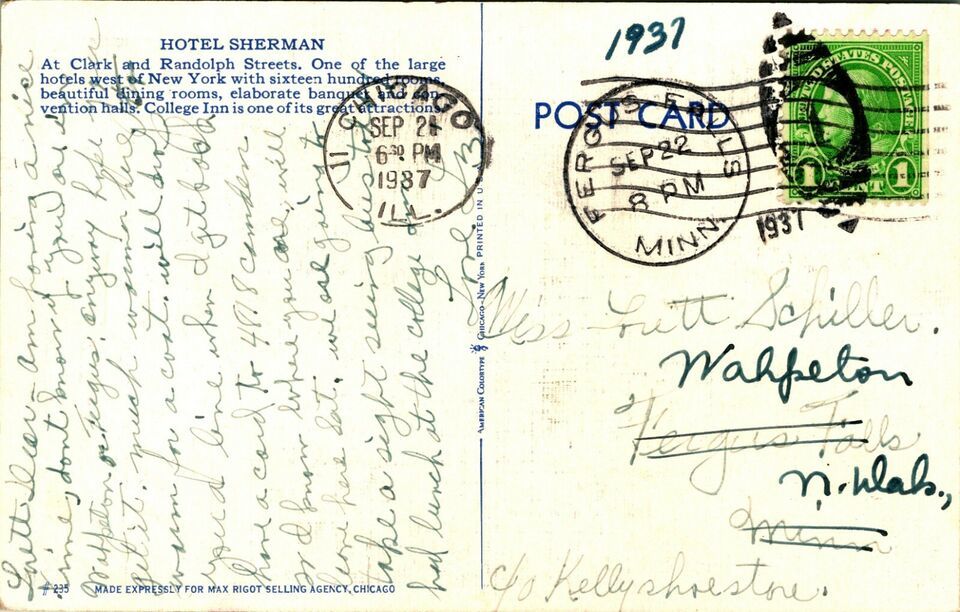 HOTEL SHERMAN
At Clark and Randolph Streets. One of the large
hotels west of New York with sixteen hundred rooms,
beautiful dining rooms, elaborate banquet and con-
vention halls. College Inn is one of its great attractions.
1937
POST CARD
UNITED STATES POSTAGE
1 CENT 1
CHICAGO
11
SEP 21
6 30 PM
1937
ILL.
FERGUS FALLS
SEP 22
8 PM
MINN.
1937
Lrett dear - Am having a nice
time, don't know if you're in
Wahpeton or Fergus. anyway hope you
get it. much warmer here
warm for a coat. will drop
you a line when I get back
have a card to 498
and know where you are, will
leave here Sat. we are going to
take a sight seeing bus
had lunch at the college
Love
Miss Lrett Schiller.
Wahpeton
Fergus Falls
N. Dak.,
Minn
c/o Kelly shoe store.
AMERICAN COLORTYPE CHICAGO - NEW YORK PRINTED IN U.S.A.
#235 MADE EXPRESSLY FOR MAX RIGOT SELLING AGENCY, CHICAGO